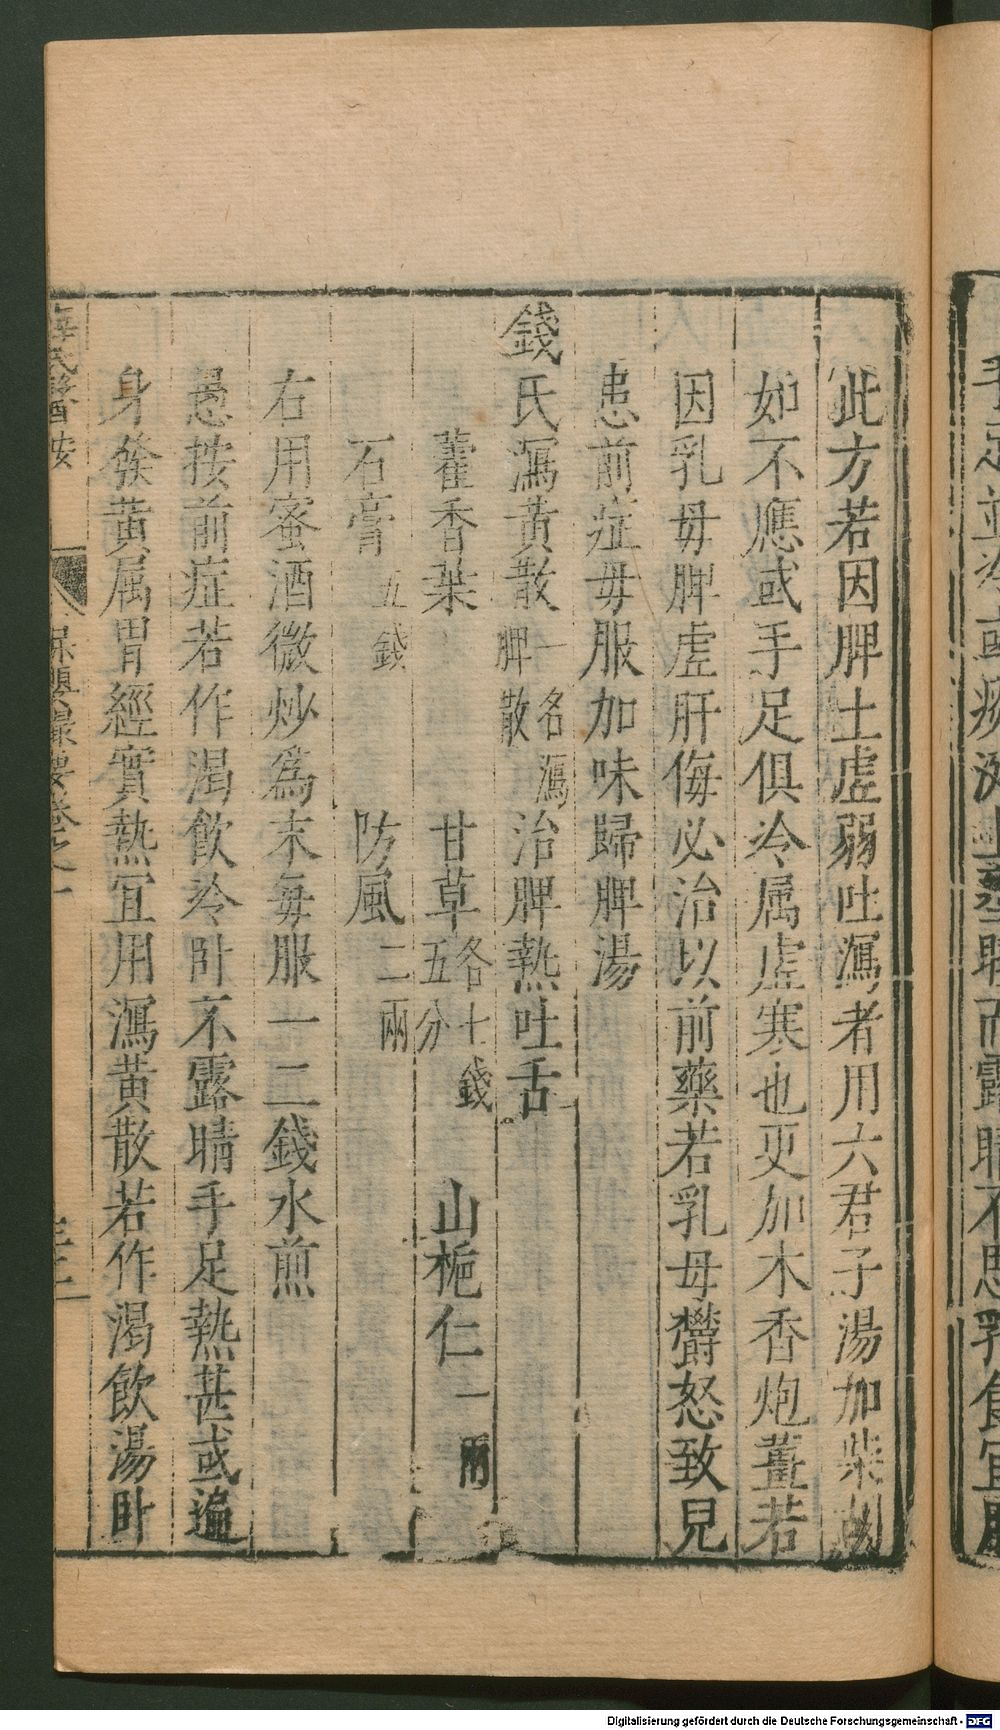 此方若因脾土虛弱吐瀉者用六君子湯加柴胡
如不應或手足俱冷属虛寒也更加木香炮薑若
因乳母脾虛肝侮必治以前藥若乳母欝怒致兒
患前症母服加味歸脾湯
錢氏瀉黄散一名瀉脾散治脾熱吐舌
藿香葉 甘草各七錢五分 山梔仁一兩
石膏五錢 防風二兩
右用蜜酒微炒為末每服一二錢水煎
愚按前症若作渴飲冷卧不露睛手足熱甚或遍
身發黄属胃經實熱宜用瀉黄散若作渴飲湯卧
薛氏醫按 保嬰撮要卷之一
Digitalisierung gefördert durch die Deutsche Forschungsgemeinschaft - DFG